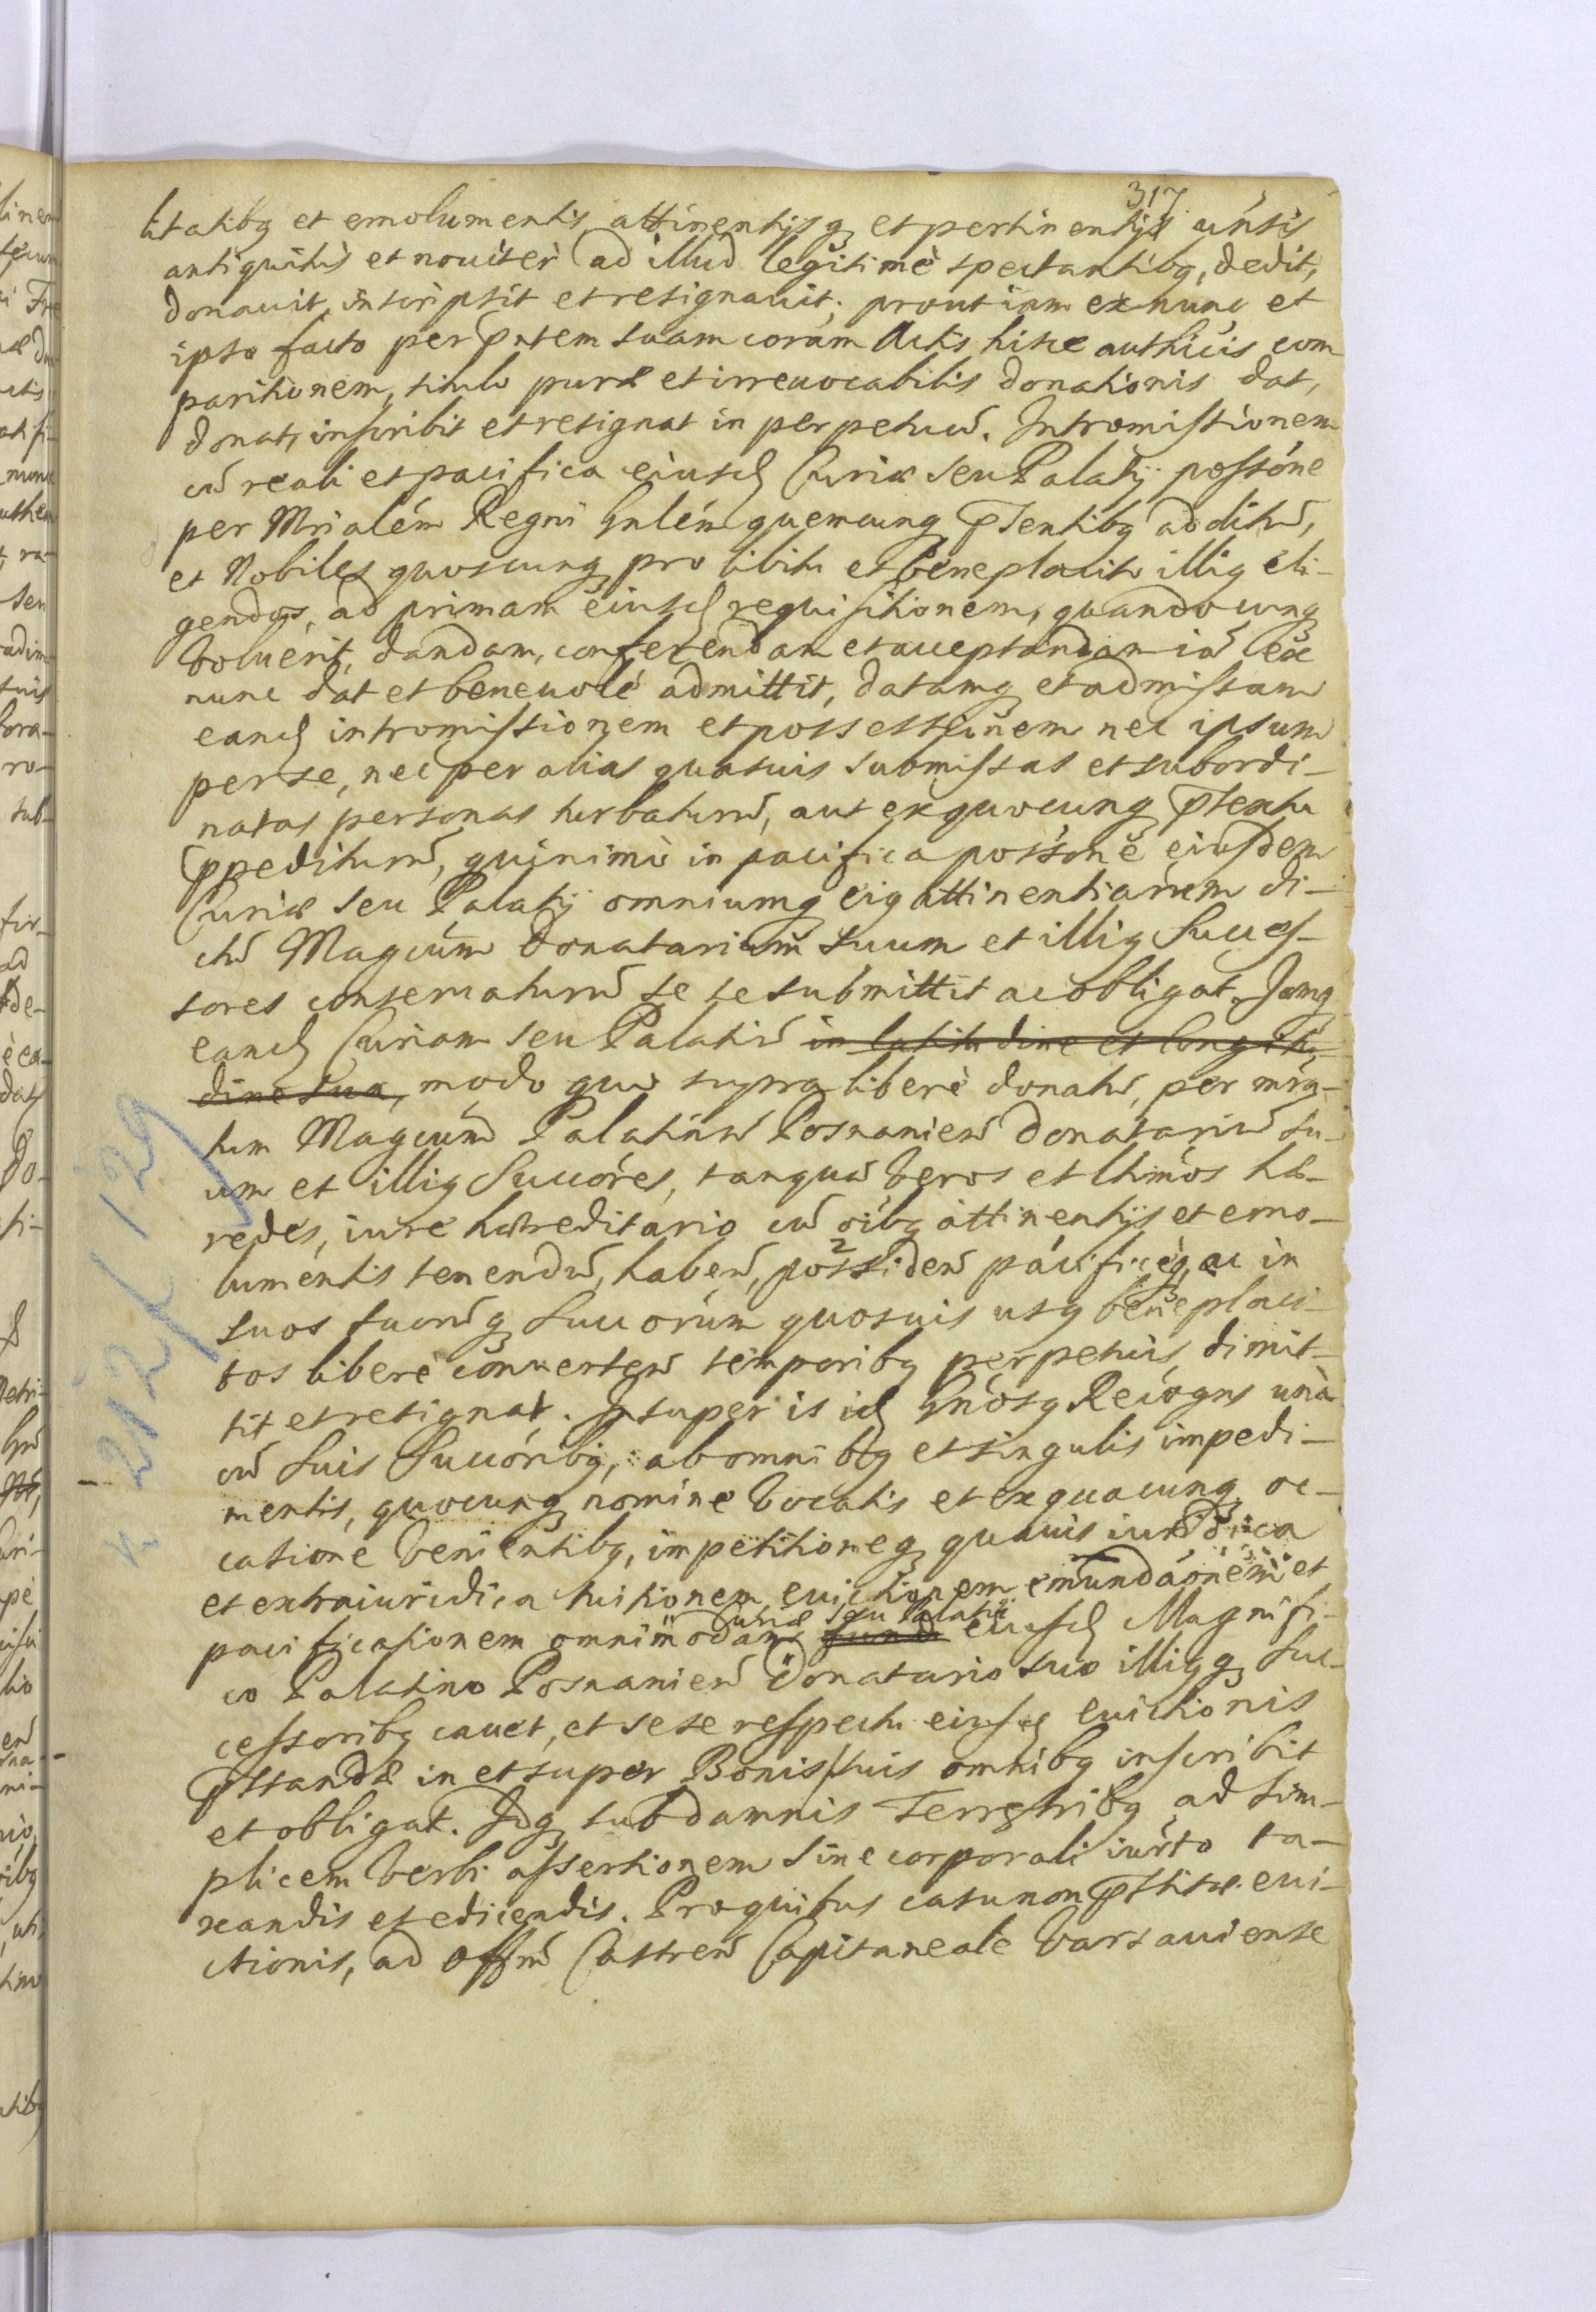 317
litatibq et emolumentis, attinentijsq et pertinentijs uńsis
antiquitùs et nouiter ad illud legitimè spectantibq, dedit,
donauit, inscripsit et resignauit, prout iam ex nunc et
ipso facto per pntem suam coram Actis hisce authćis com
paritionem, titulo puræ et irreuocabilis donationis dat,
donat, inscribit et resignat in perpetuū. Intromissionem
cū reali et pacifica eiusd Curiæ seu Palatij possóne
per Mrialém Regni Gnlém quemcunq pſentibq additū,
et Nobiles quoscunq pro libitu et beneplacito illiq eli-
gendos, ad primam eiusd requisitionem, quandocunq
voluerit, dandam, conferendam et acceptandam iā ex
nunc dat et beneuolè admittit, datamq et admissam
eand intromissionem et possessionem nec ipsum
per se, nec per alias quasuis submissas et subordi-
natas personas turbaturū, aut ex quocunq pſtextu
ppediturū, quinimò in pacifica possonē eiusdem
Curiæ seu Palatij omniumq eiq attinentiarum di-
ctū Magcūm Donatarium suum et illiq Succes-
sores conseruaturū se se submittit ac obligat. Jamq
eand Curiam seu Palatiū in latitudine et longitu
dine sua, modo quo supra liberè donatū, per mrā-
tum Magcūm Palatinū Posnanień donatariū su-
um et illiq Succóres, tanquā veros et lhimós hæ-
redes, iure hæreditario cū oibq attinentijs et emo-
lumentis tenendū, habeń, possideń pacificeq, ac in
suos suorūq Succorúm quosuis usq beneplaci-
tos liberè conuerteń temporibq perpetuis, dimit-
tit et resignat. Insuper is id Gnósq Recogns unà
cū suis Succóribq, ab omnibq et singulis impedi-
mentis, quocunq nomine vocatis et ex quacunq oc-
casione venientibq, impetitioneq quauis iuridica
et extraiuridica tuitionem, euictionem emundaónem et
Curiæ seu Palatii
pacificationem omnimodam fundi eiusd Magnifi-
co Palatino Posnanień Donatario suo illiqq Suc-
cessoribq cauet, et sese respectu eiusd euictionis
pſtandæ in et super Bonis suis omnibq inscribit
et obligat. Idq sub damnis Terrestribq ad sim-
plicem verbi assertionem sine corporali iurto ta-
xandis et edicendis. Pro quibus casu non pſtitæ eui-
ctionis, ad Offm Castreń Capitaneale Varsauiense